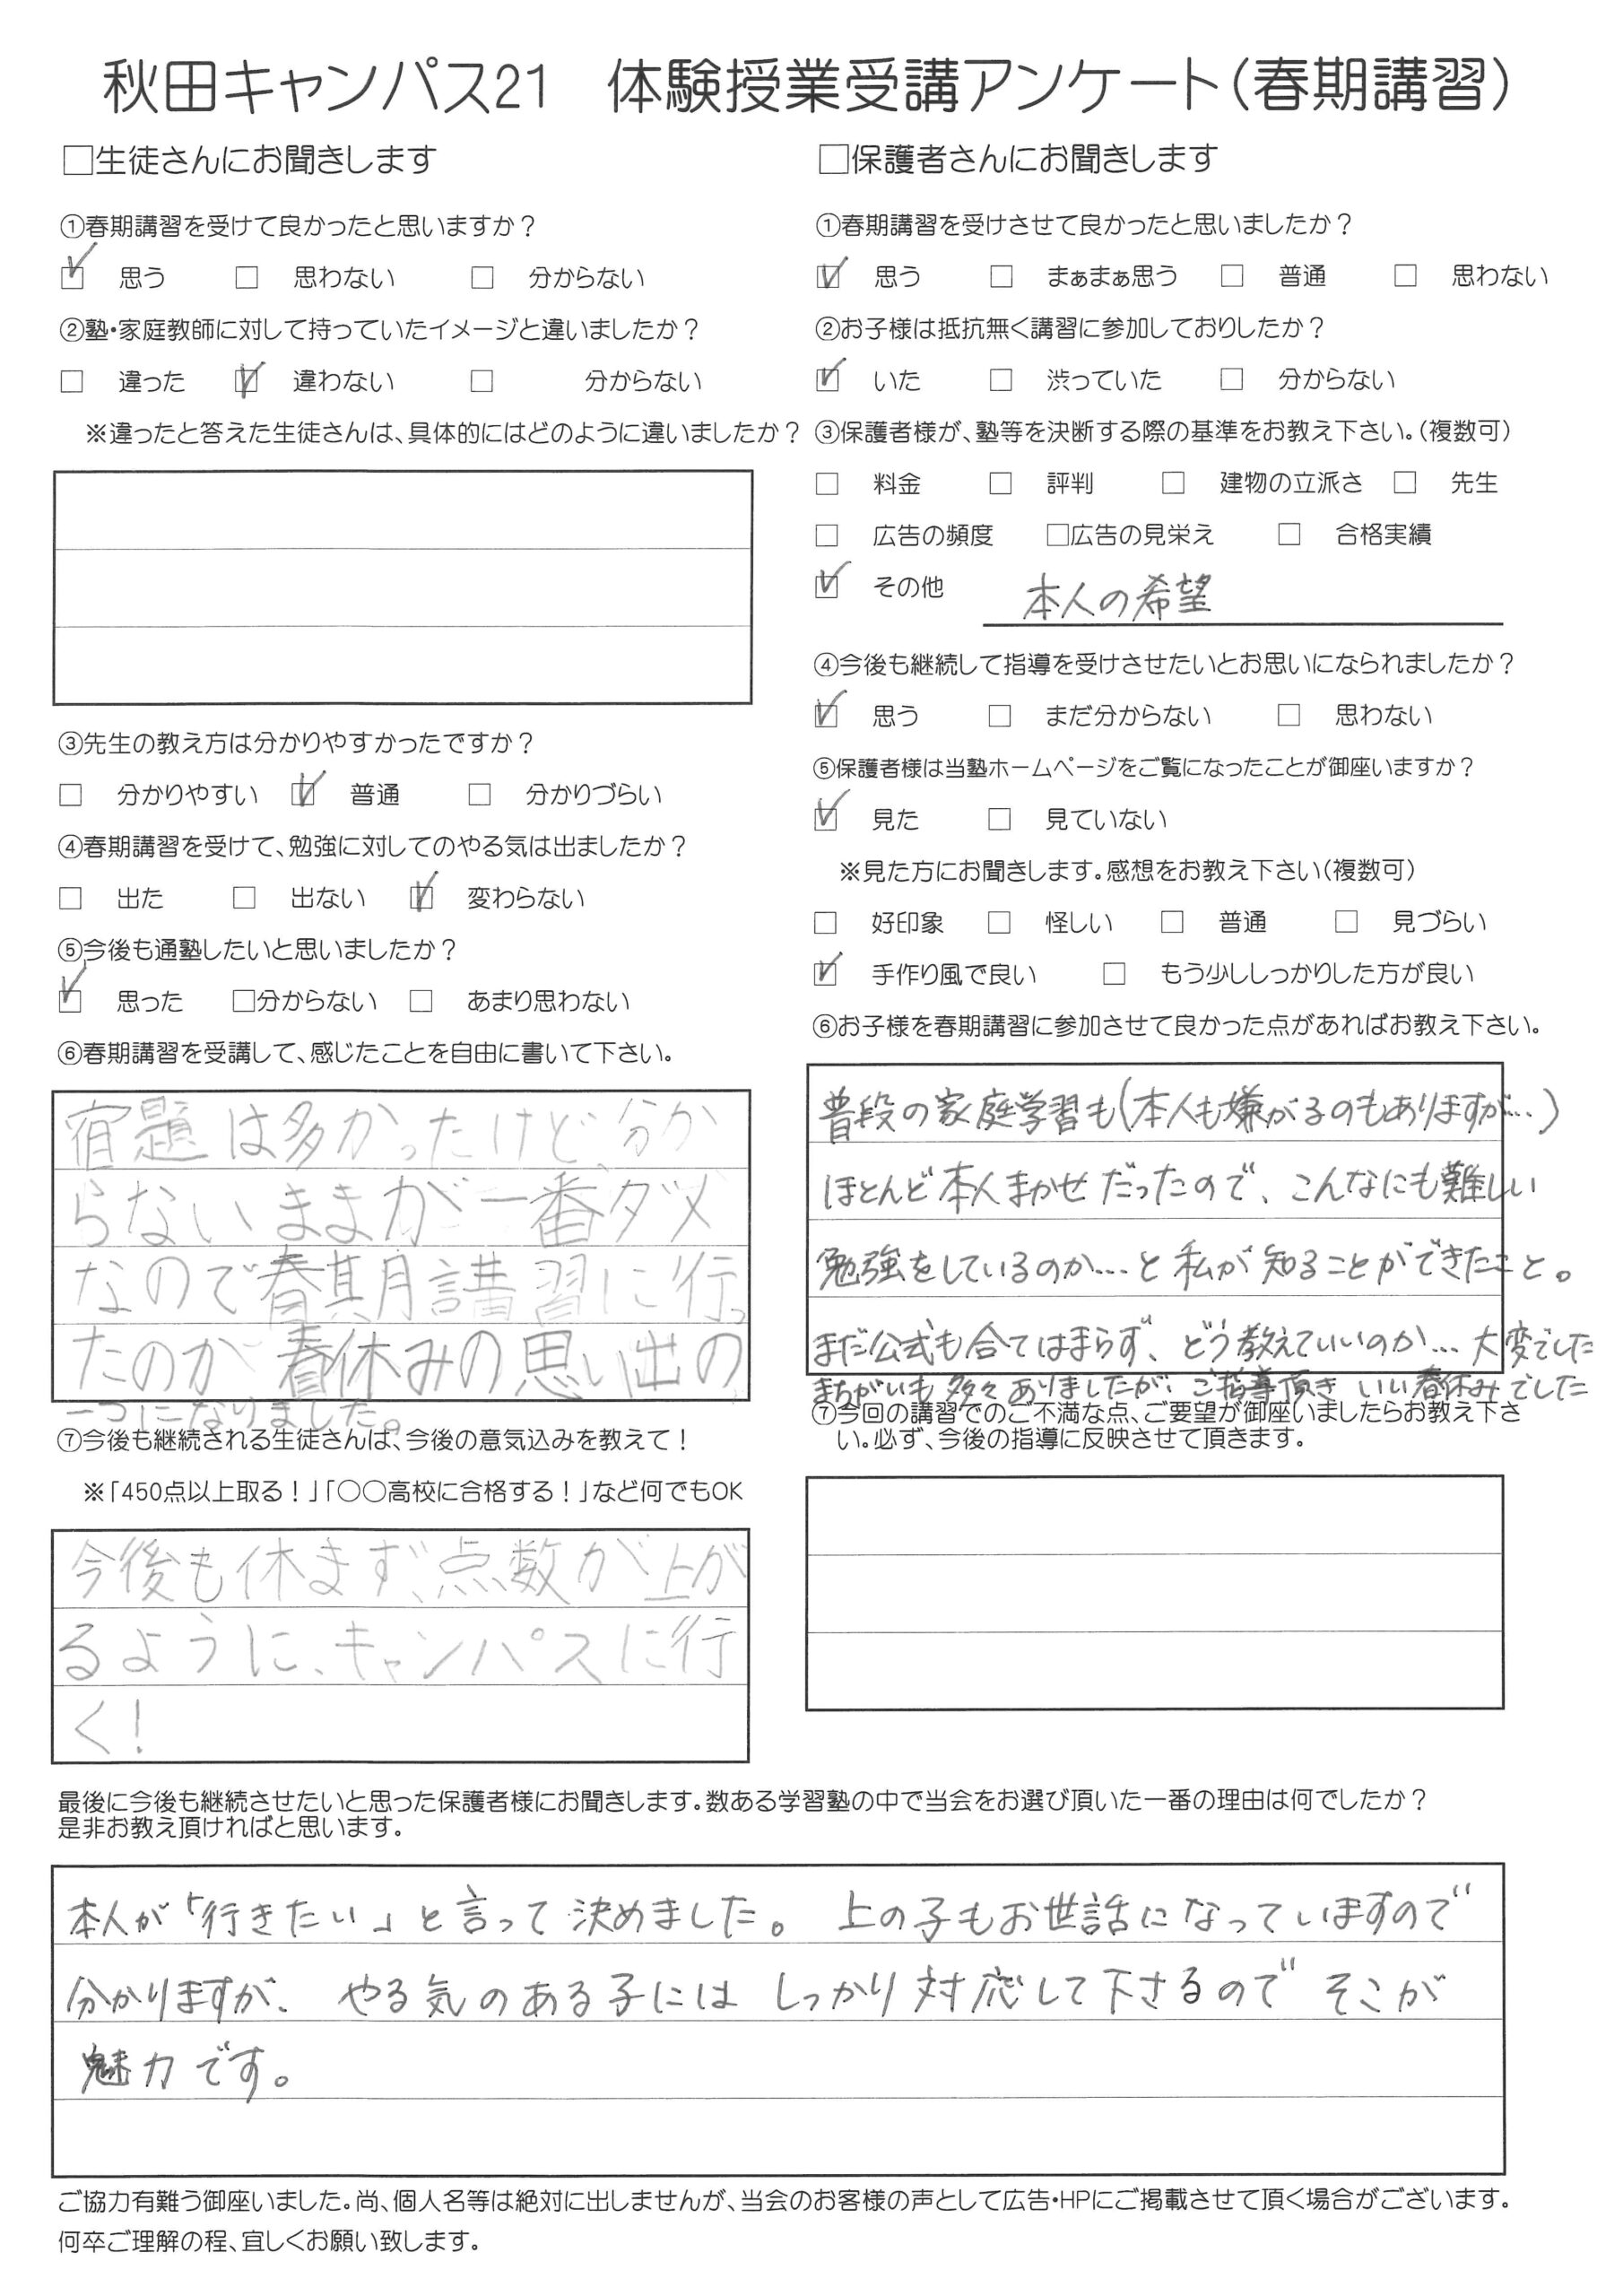 秋田キャンパス21　体験授業受講アンケート（春期講習）
□生徒さんにお聞きします
①春期講習を受けて良かったと思いますか？
☑ 思う　□ 思わない　□ 分からない
②塾・家庭教師に対して持っていたイメージと違いましたか？
□ 違った　☑ 違わない　□ 分からない
※違ったと答えた生徒さんは、具体的にはどのように違いましたか？
③先生の教え方は分かりやすかったですか？
□ 分かりやすい　☑ 普通　□ 分かりづらい
④春期講習を受けて、勉強に対してのやる気は出ましたか？
□ 出た　□ 出ない　☑ 変わらない
⑤今後も通塾したいと思いましたか？
☑ 思った　□分からない　□ あまり思わない
⑥春期講習を受講して、感じたことを自由に書いて下さい。
宿題は多かったけど、分か
らないままが一番ダメ
なので春期講習に行っ
たのが春休みの思い出の
一つになりました。
⑦今後も継続される生徒さんは、今後の意気込みを教えて！
※「450点以上取る！」「○○高校に合格する！」など何でもOK
今後も休まず、点数が上が
るように、キャンパスに行
く！
□保護者さんにお聞きします
①春期講習を受けさせて良かったと思いましたか？
☑ 思う　□ まぁまぁ思う　□ 普通　□ 思わない
②お子様は抵抗無く講習に参加しておりしたか？
☑ いた　□ 渋っていた　□ 分からない
③保護者様が、塾等を決断する際の基準をお教え下さい。（複数可）
□ 料金　□ 評判　□ 建物の立派さ　□ 先生
□ 広告の頻度　□広告の見栄え　□ 合格実績
☑ その他　本人の希望
④今後も継続して指導を受けさせたいとお思いになられましたか？
☑ 思う　□ まだ分からない　□ 思わない
⑤保護者様は当塾ホームページをご覧になったことが御座いますか？
☑ 見た　□ 見ていない
※見た方にお聞きします。感想をお教え下さい（複数可）
□ 好印象　□ 怪しい　□ 普通　□ 見づらい
☑ 手作り風で良い　□ もう少ししっかりした方が良い
⑥お子様を春期講習に参加させて良かった点があればお教え下さい。
普段の家庭学習も（本人も嫌がるのもありますが…）
ほとんど本人まかせだったので、こんなにも難しい
勉強をしているのか…と私が知ることができたこと。
まだ公式も合てはまらず、どう教えていいのか… 大変でした
まちがいも多々ありましたが、ご指導頂き いい春休みでした
⑦今回の講習でのご不満な点、ご要望が御座いましたらお教え下さ
い。必ず、今後の指導に反映させて頂きます。
最後に今後も継続させたいと思った保護者様にお聞きします。数ある学習塾の中で当会をお選び頂いた一番の理由は何でしたか？
是非お教え頂ければと思います。
本人が「行きたい」と言って決めました。上の子もお世話になっていますので
分かりますが、やる気のある子にはしっかり対応して下さるので そこが
魅力です。
ご協力有難う御座いました。尚、個人名等は絶対に出しませんが、当会のお客様の声として広告・HPにご掲載させて頂く場合がございます。
何卒ご理解の程、宜しくお願い致します。